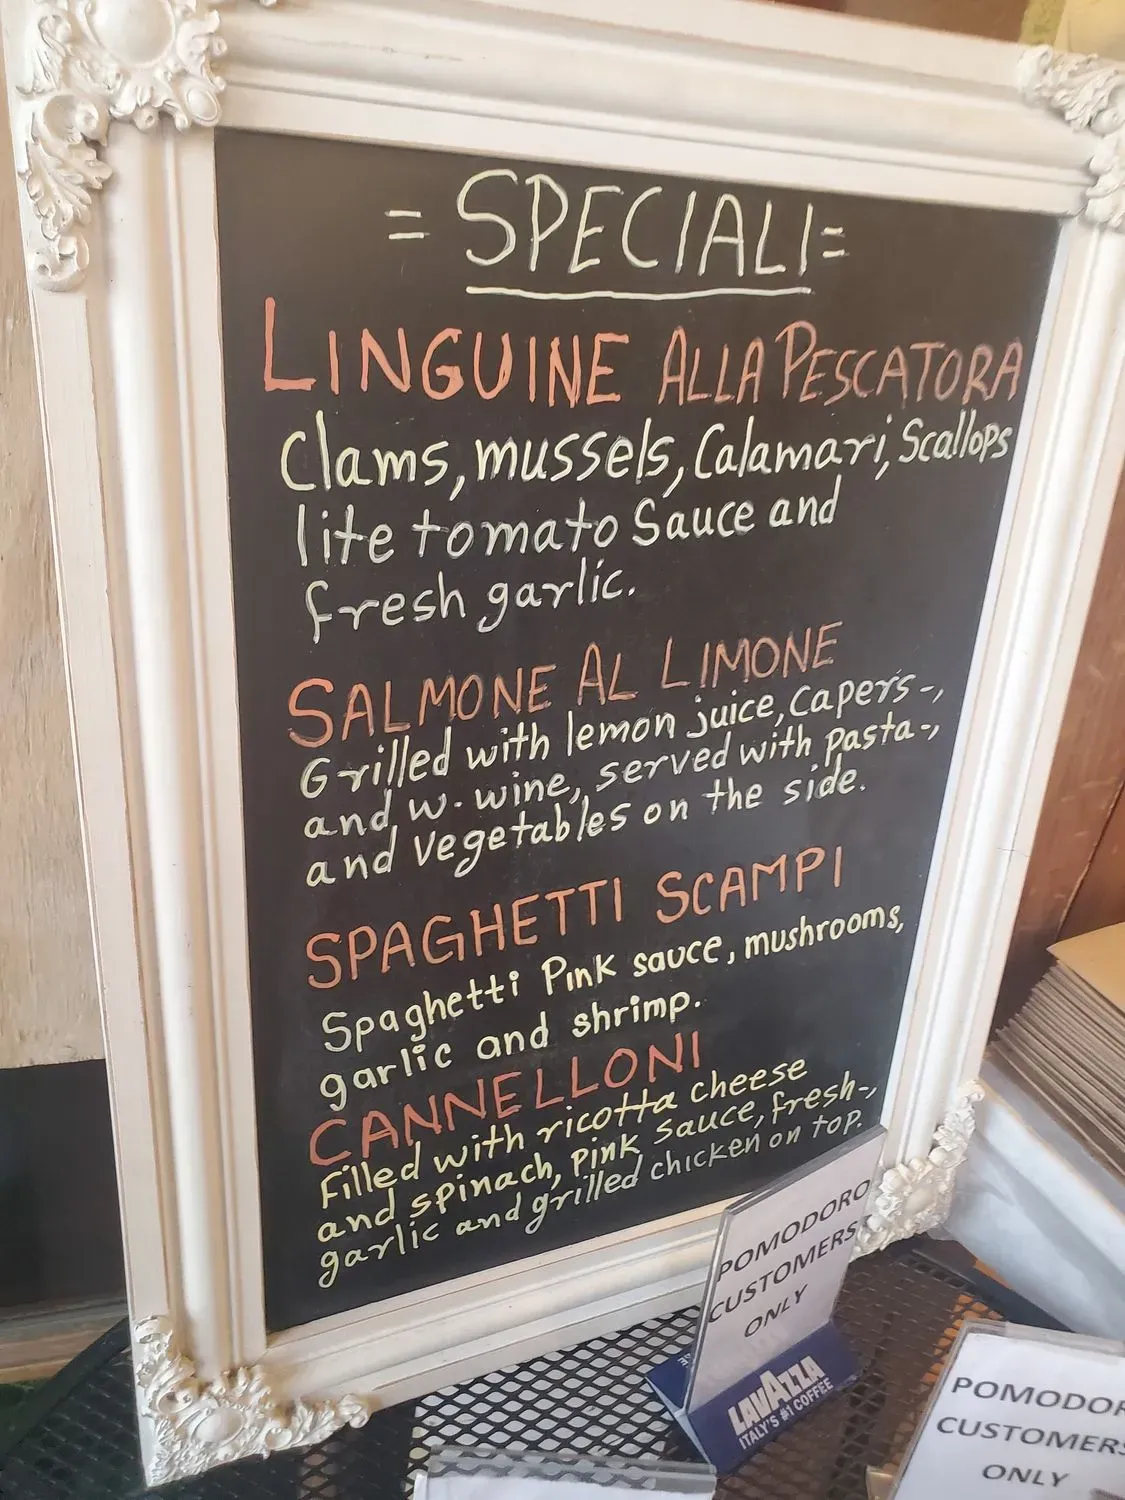 = SPECIALI =
LINGUINE ALLA PESCATORA
Clams, mussels, Calamari, Scallops
lite tomato Sauce and
fresh garlic.
SALMONE AL LIMONE
Grilled with lemon juice, capers-,
and w. wine, served with pasta-,
and vegetables on the side.
SPAGHETTI SCAMPI
Spaghetti Pink sauce, mushrooms,
garlic and shrimp.
CANNELLONI
Filled with ricotta cheese
and spinach, pink sauce, fresh-,
garlic and grilled chicken on top.
POMODORO
CUSTOMERS
ONLY
LAVAZZA
ITALY'S #1 COFFEE
POMODOR
CUSTOMERS
ONLY